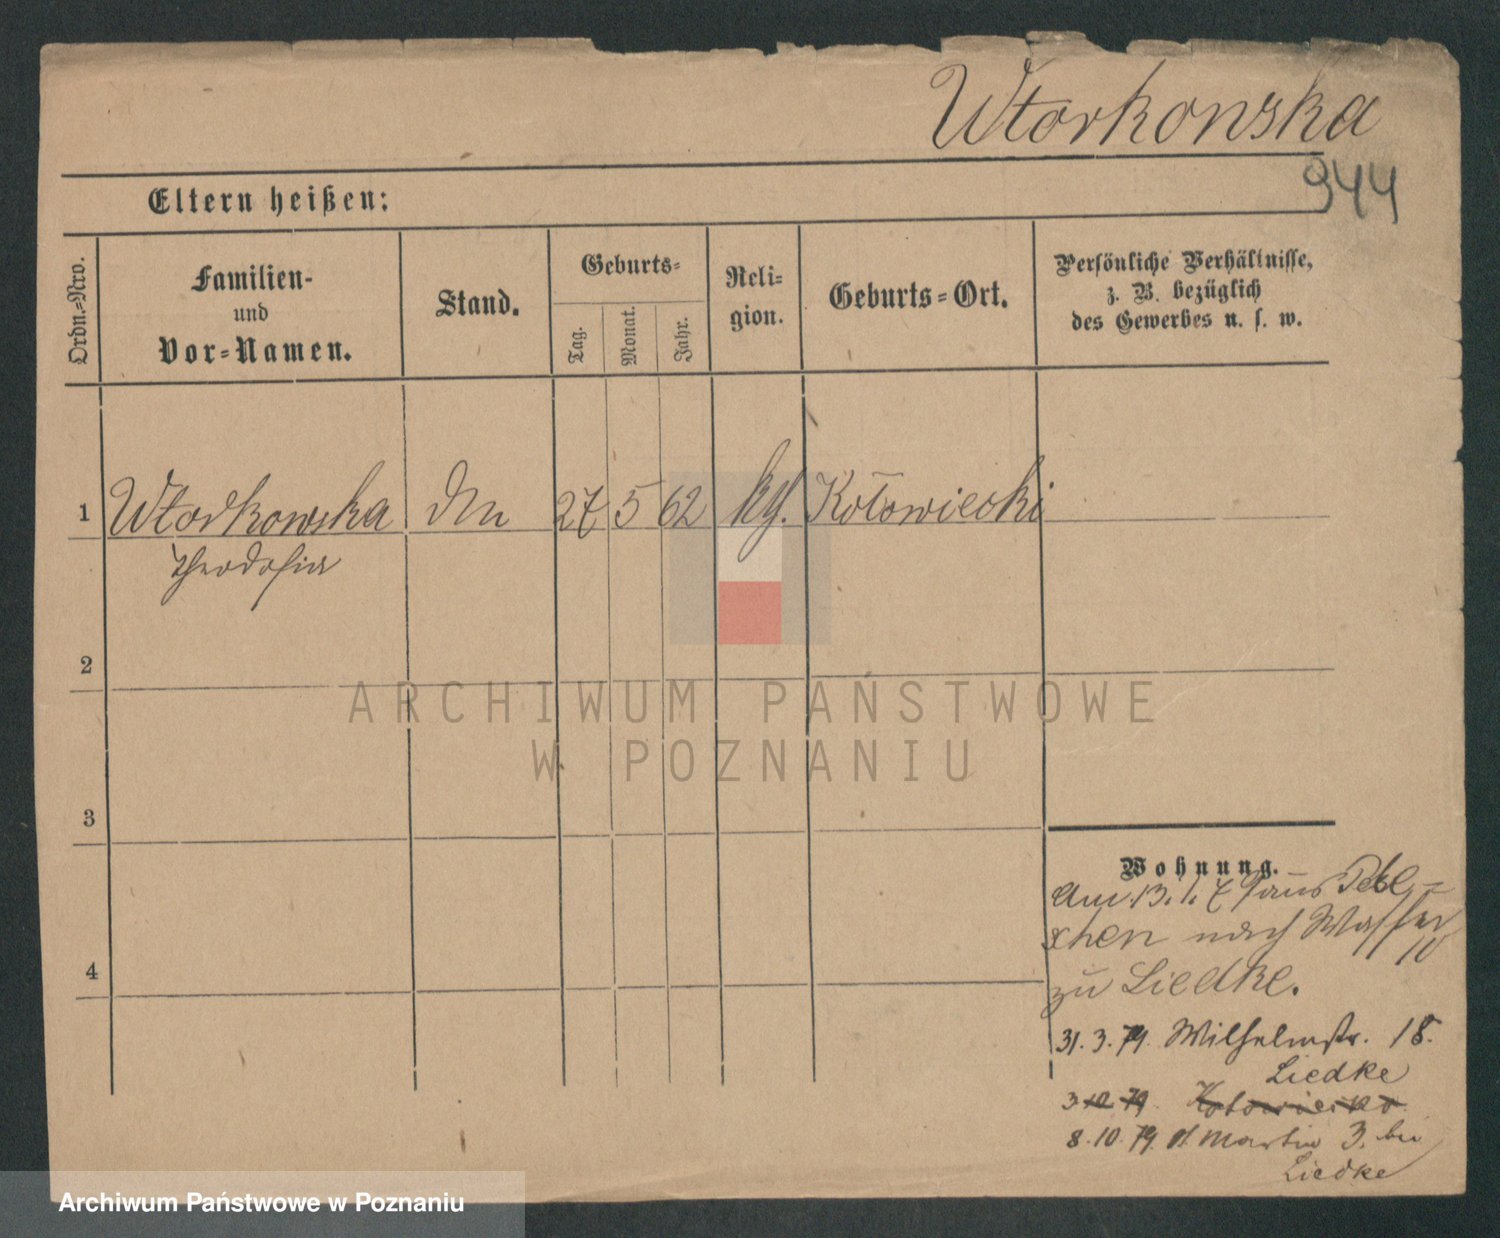 Wtorkowska
944
Eltern heißen:
Ordn.-Nro.
Familien-
und
Vor-Namen.
Stand.
Geburts-
Tag.
Monat.
Jahr.
Reli-
gion.
Geburts-Ort.
Persönliche Verhältnisse,
z. B. bezüglich
des Gewerbes u. s. w.
1 Wtorkowska 27 5 62 Kołowiecki
Theodosia
2
3
4
Wohnung.
Am 13. 1. 79 aus
nach Wasser
10
zu Liedke.
31. 3. 79. Wilhelmstr. 18.
Liedke
3 10 79. Kotowiecko
8. 10. 79. St. Martin 3. bei
Liedke
ARCHIWUM PAŃSTWOWE
W POZNANIU
Archiwum Państwowe w Poznaniu